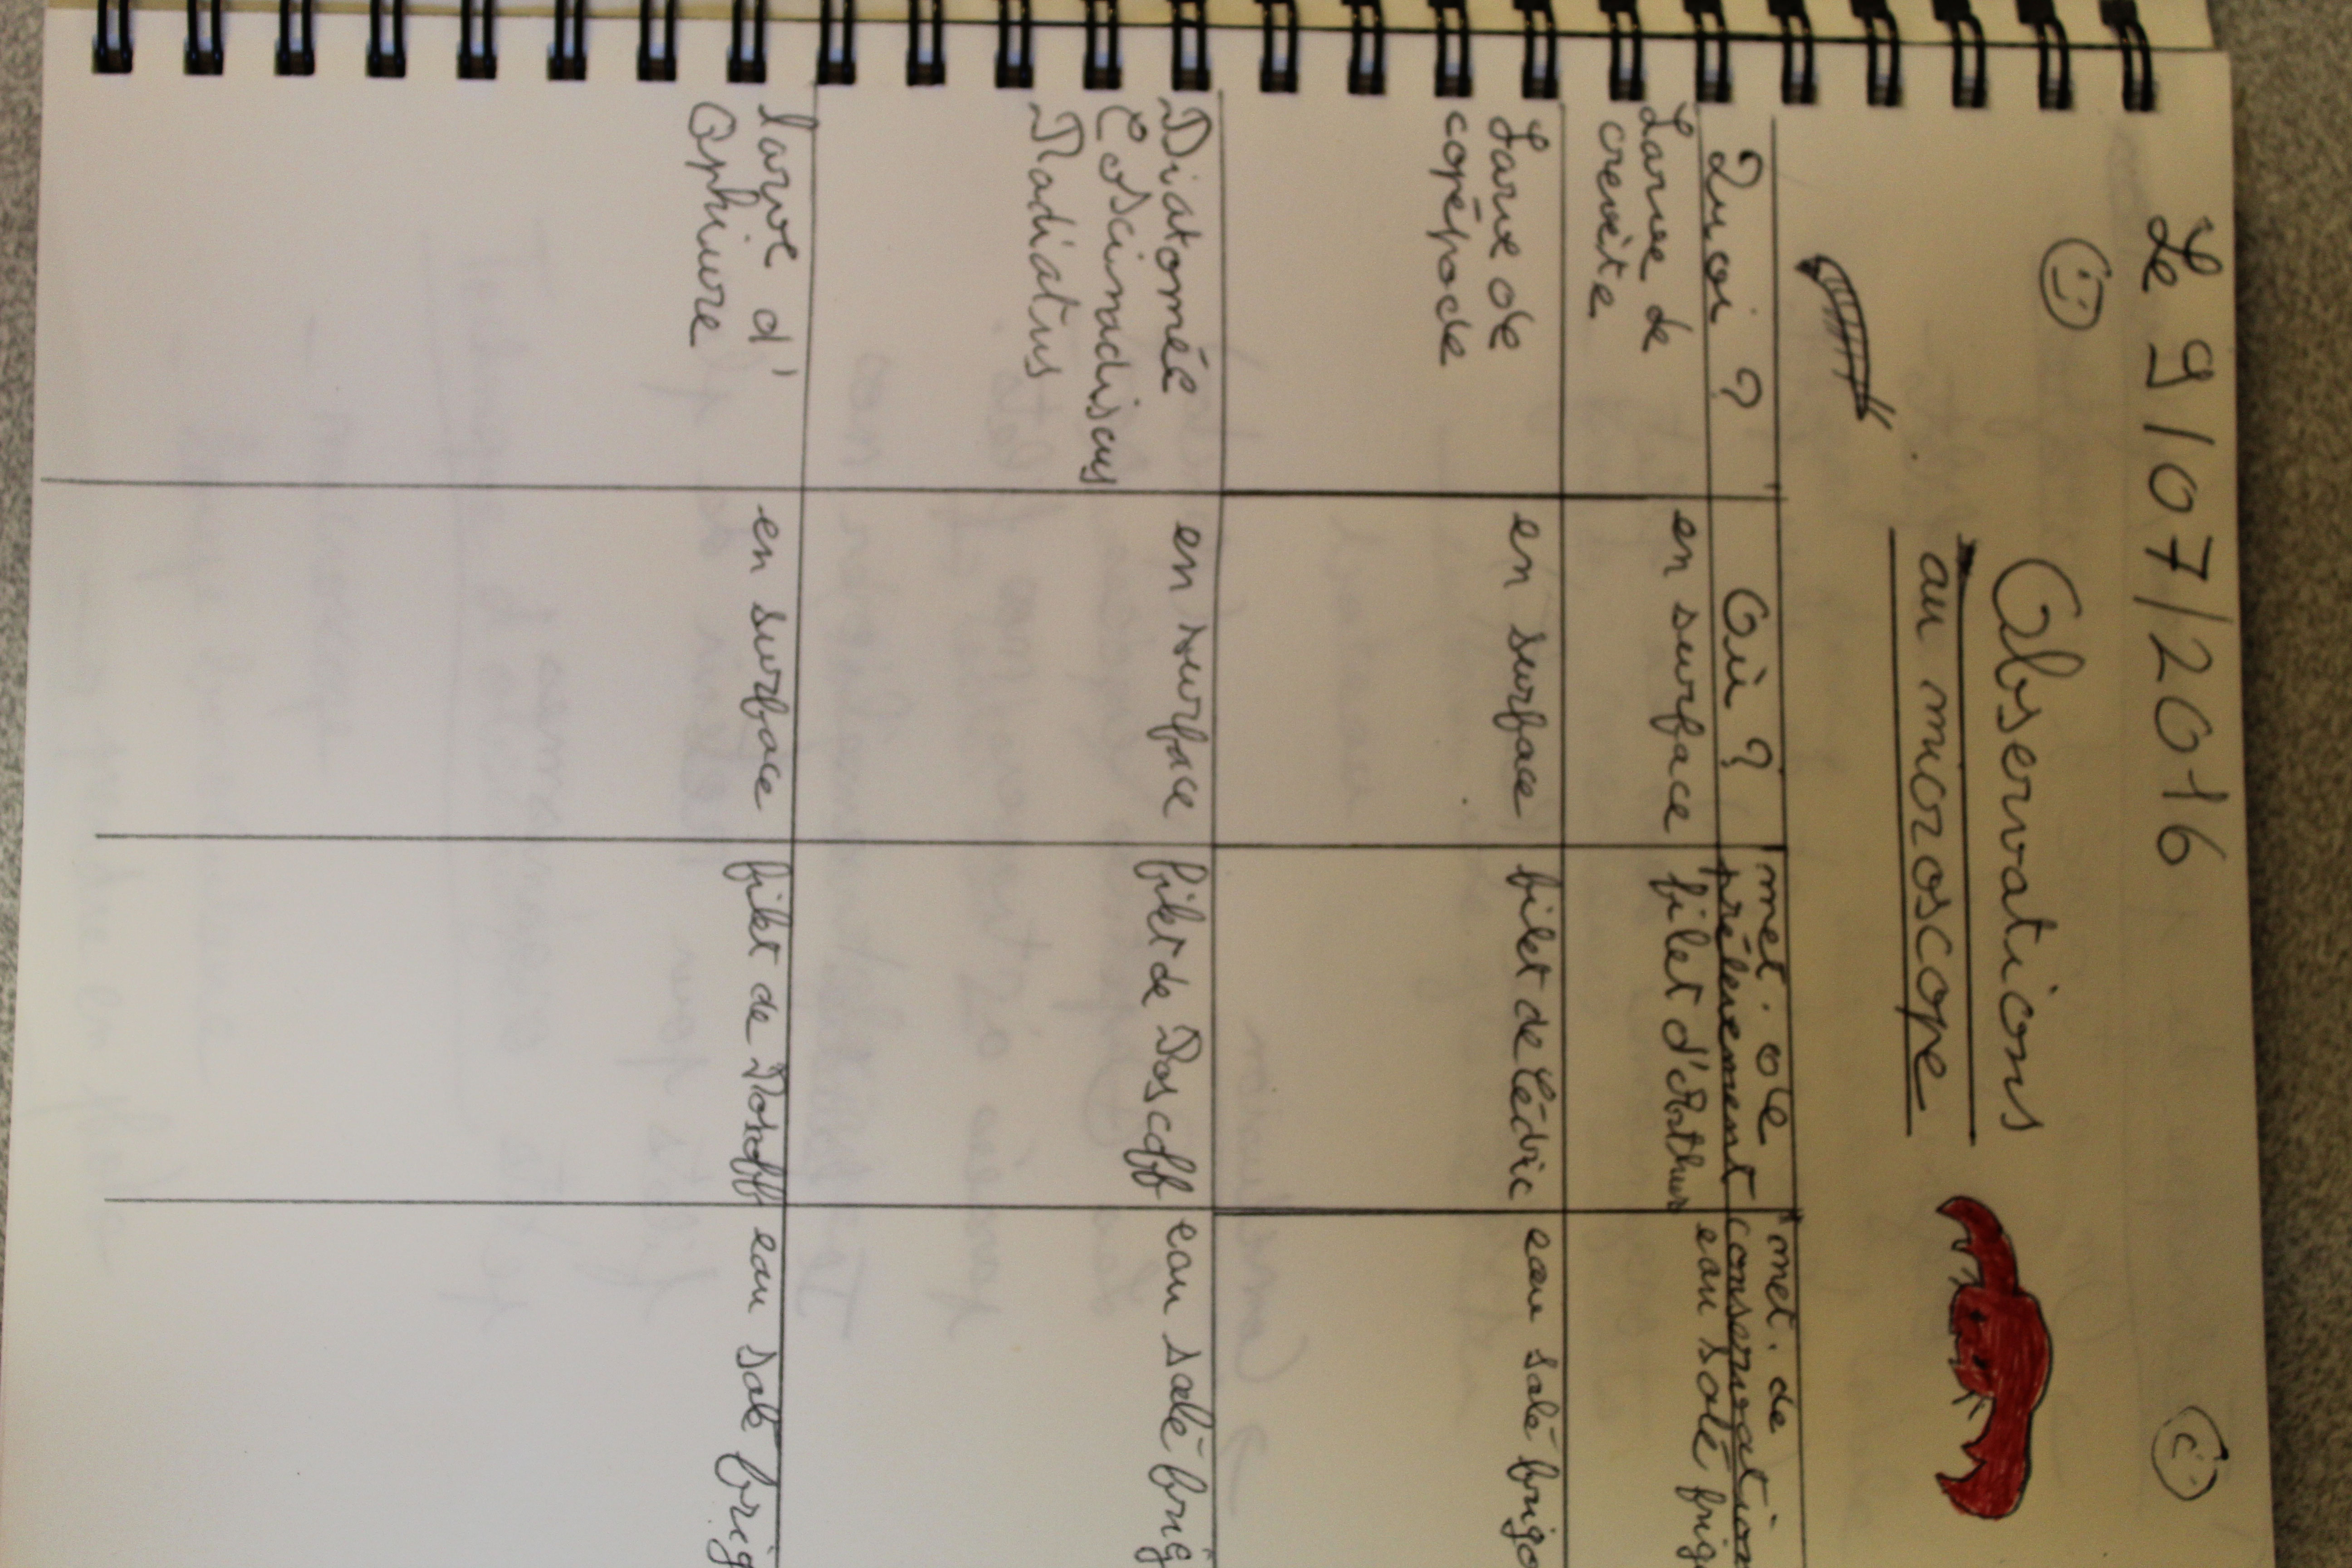 Le 9/07/2016
Observations
au microscope
Quoi ? Où ? met. de prélèvement met. de conservation
Larve de crevète en surface filet d'Arthur eau salé frig
Larve de copépode en surface filet de Cédric eau salé frigo
Diatomée Coscinodiscus Radiatus en surface filet de Roscoff eau salé frig
larve d' Ophiure en surface filet de Roscoff eau salé frig